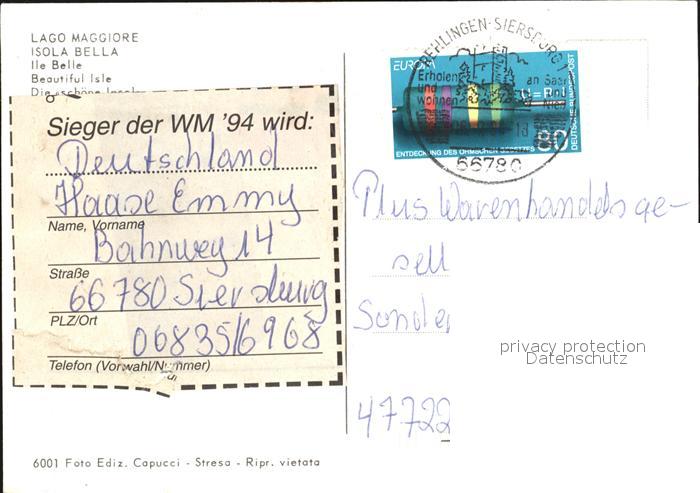 LAGO MAGGIORE
ISOLA BELLA
Ile Belle
Beautiful Isle
Die schöne Insel
Sieger der WM '94 wird:
Deutschland
Haase Emmy
Name, Vorname
Bahnweg 14
Straße
66780 Siersburg
PLZ/Ort
06835/6968
Telefon (Vorwahl/Nummer)
6001 Foto Ediz. Capucci - Stresa - Ripr. vietata
REHLINGEN-SIERSBURG
EUROPA
Erholen
und
wohnen
an Saar
und
Nied
80
DEUTSCHE BUNDESPOST
ENTDECKUNG DES OHMSCHEN GESETZES
66780
Plus Warenhandelsge-
sell
Sonde
47722
privacy protection
Datenschutz